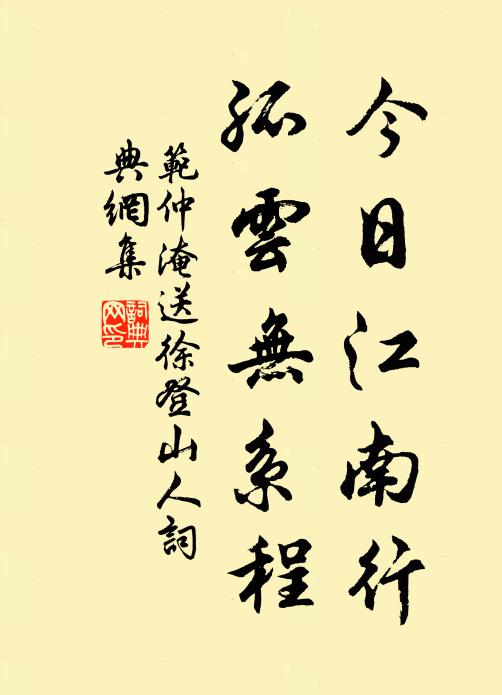 今日江南行
孤雲無系程
範仲淹送徐登山人詞
典網集
詞典網印